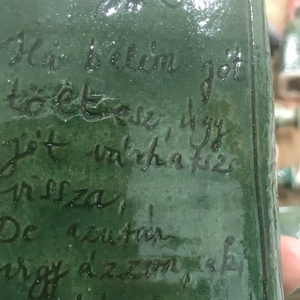 Ha belém jót
töltesz, úgy
jót várhatsz
vissza,
De azután
úgy ázzon, aki